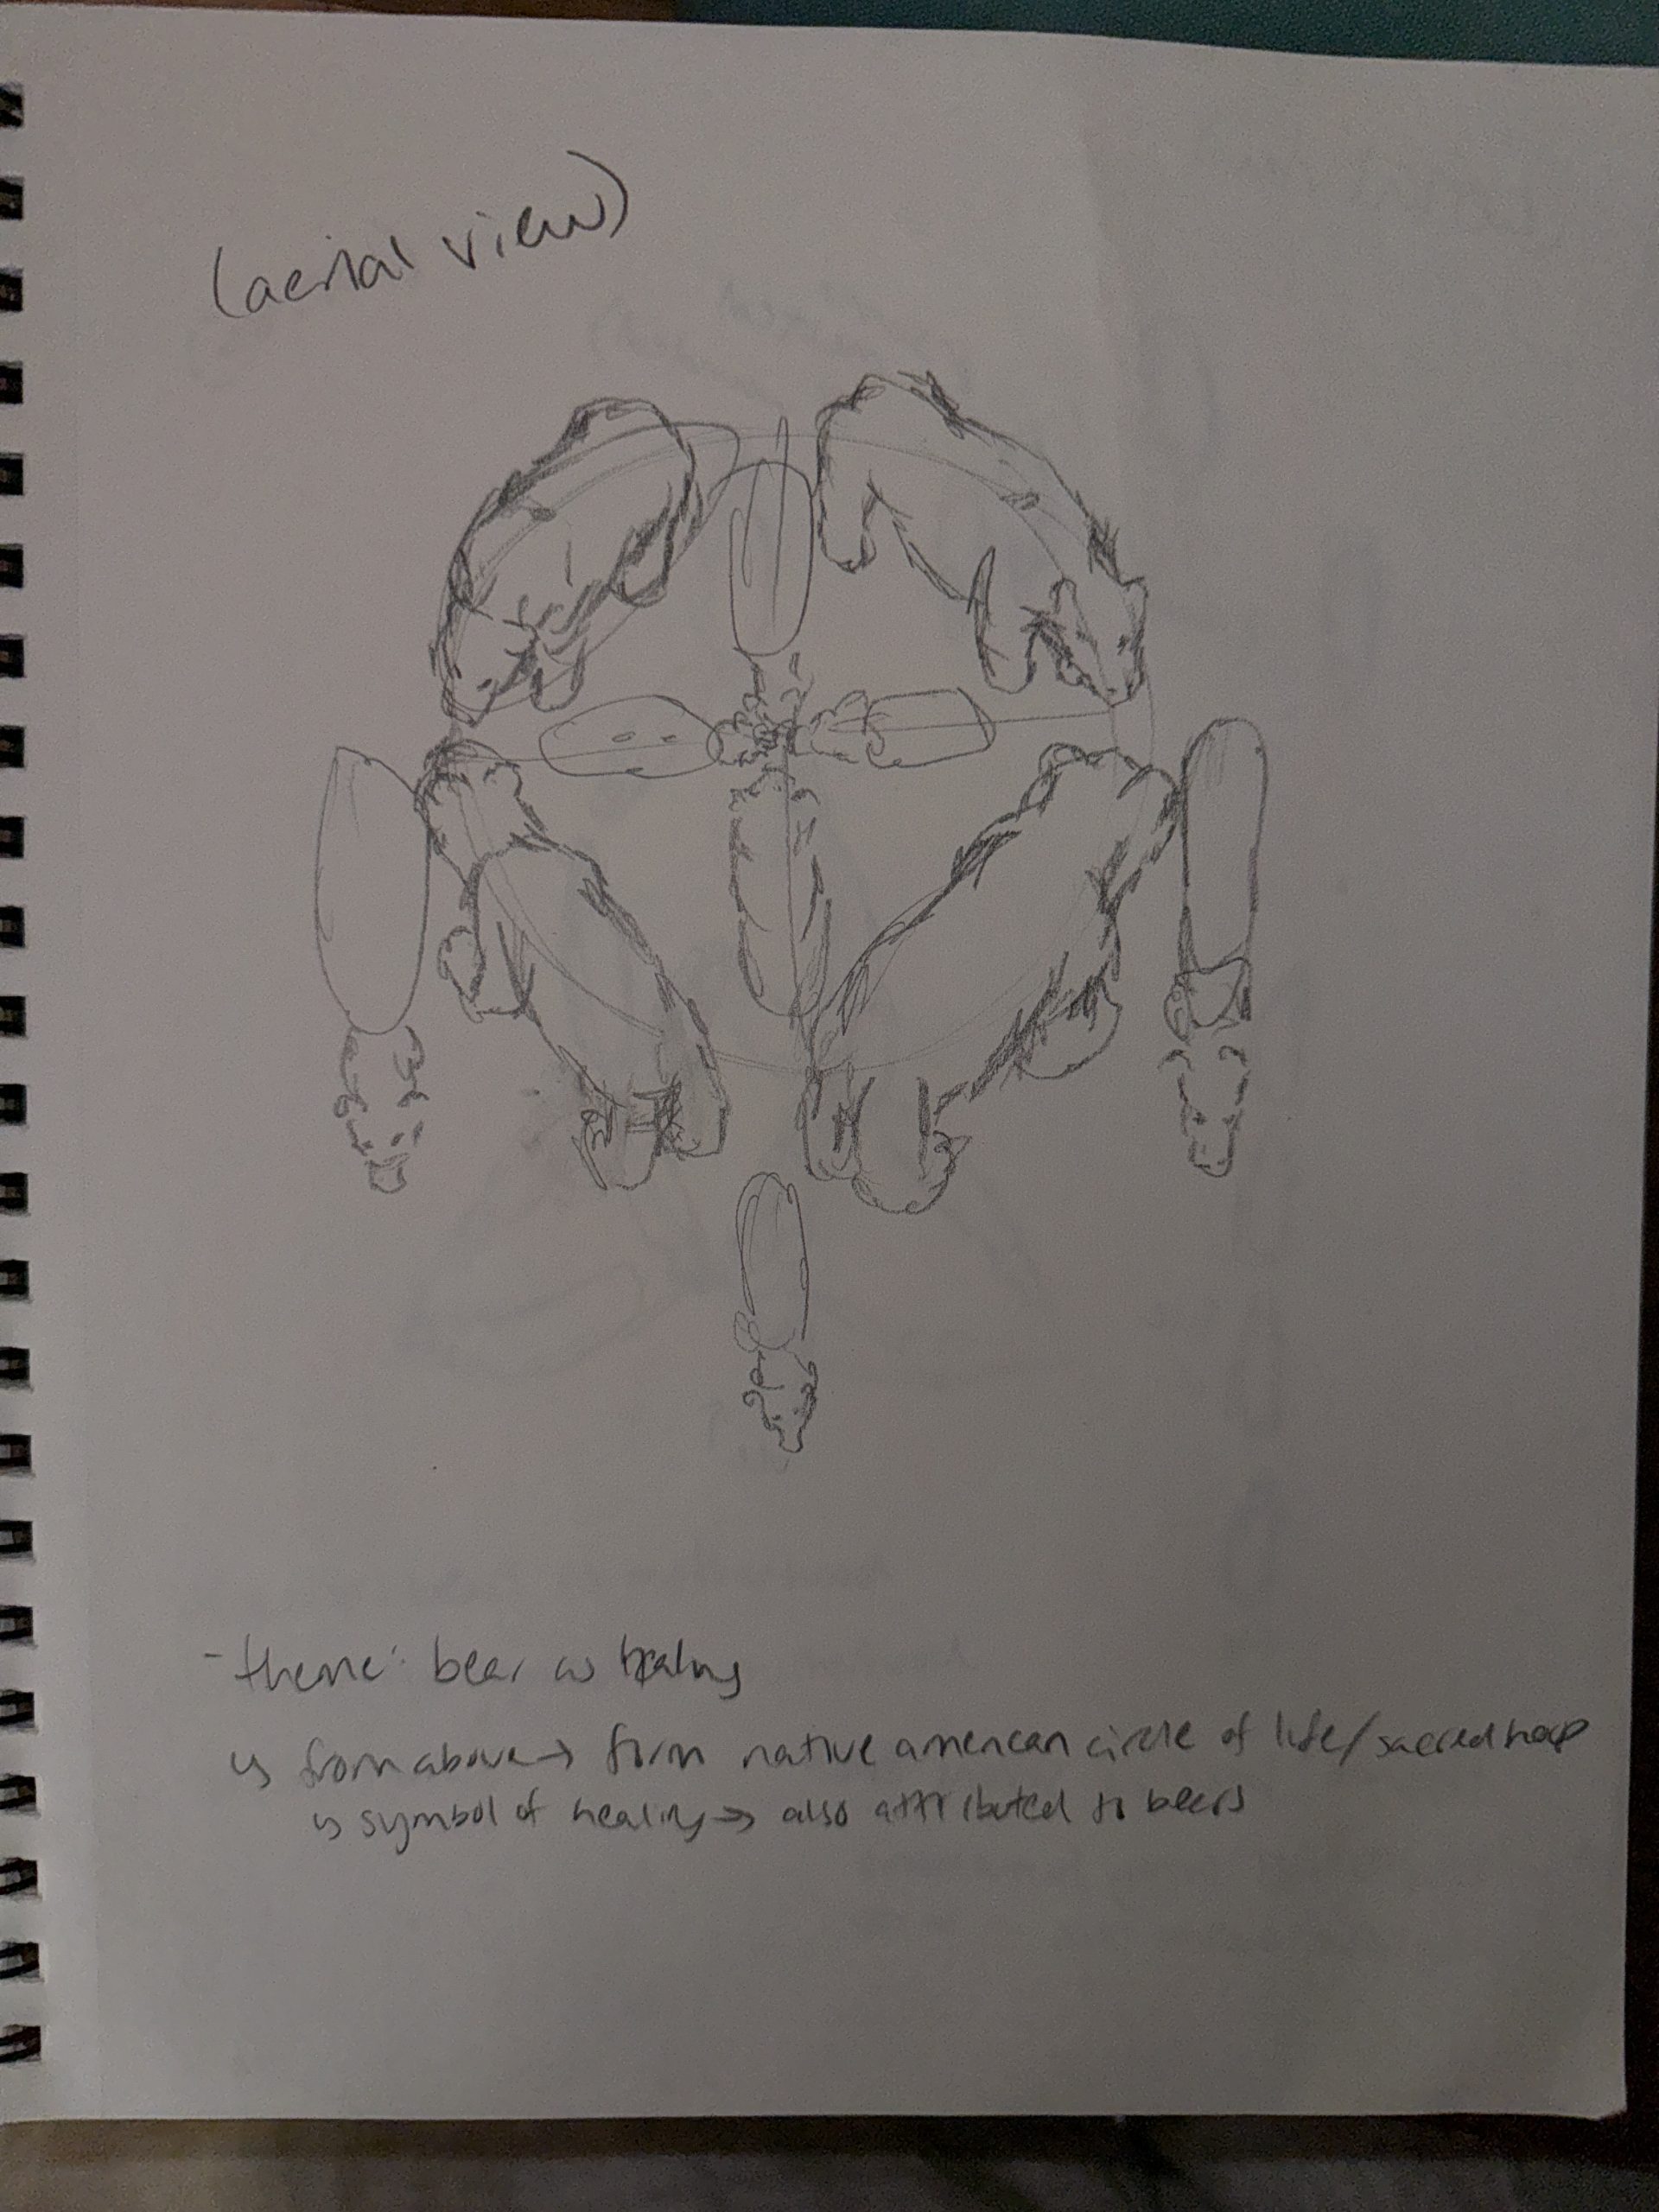 (aerial view)
- theme: bear as healing
↳ from above → form native american circle of life/sacred hoop
↳ symbol of healing → also attributed to bears